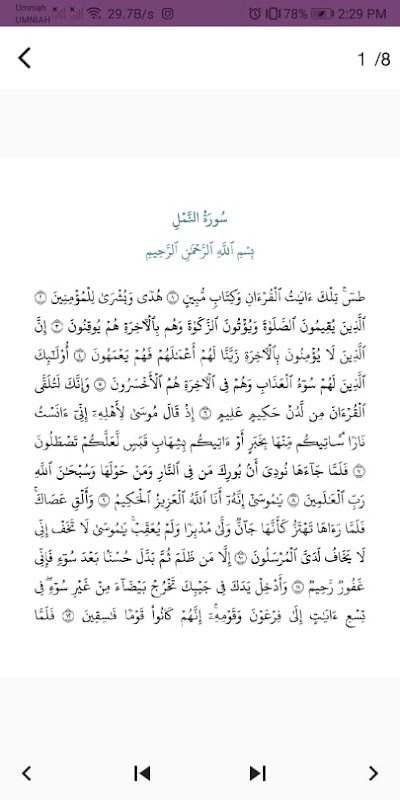 Umniah
UMNIAH
29.7B/s
78%
2:29 PM
1 /8
سُورَةُ النَّمْلِ
بِسْمِ ٱللَّهِ ٱلرَّحْمَٰنِ ٱلرَّحِيمِ
طسٓۚ تِلْكَ ءَايَٰتُ ٱلْقُرْءَانِ وَكِتَابٍ مُّبِينٍ ۝١ هُدًى وَبُشْرَىٰ لِلْمُؤْمِنِينَ ۝٢
ٱلَّذِينَ يُقِيمُونَ ٱلصَّلَوٰةَ وَيُؤْتُونَ ٱلزَّكَوٰةَ وَهُم بِٱلْءَاخِرَةِ هُمْ يُوقِنُونَ ۝٣ إِنَّ
ٱلَّذِينَ لَا يُؤْمِنُونَ بِٱلْءَاخِرَةِ زَيَّنَّا لَهُمْ أَعْمَٰلَهُمْ فَهُمْ يَعْمَهُونَ ۝٤ أُو۟لَٰٓئِكَ
ٱلَّذِينَ لَهُمْ سُوٓءُ ٱلْعَذَابِ وَهُمْ فِى ٱلْءَاخِرَةِ هُمُ ٱلْأَخْسَرُونَ ۝٥ وَإِنَّكَ لَتُلَقَّى
ٱلْقُرْءَانَ مِن لَّدُنْ حَكِيمٍ عَلِيمٍ ۝٦ إِذْ قَالَ مُوسَىٰ لِأَهْلِهِۦٓ إِنِّىٓ ءَانَسْتُ
نَارًا سَـَٔاتِيكُم مِّنْهَا بِخَبَرٍ أَوْ ءَاتِيكُم بِشِهَابٍ قَبَسٍ لَّعَلَّكُمْ تَصْطَلُونَ
۝٧ فَلَمَّا جَآءَهَا نُودِىَ أَنۢ بُورِكَ مَن فِى ٱلنَّارِ وَمَنْ حَوْلَهَا وَسُبْحَٰنَ ٱللَّهِ
رَبِّ ٱلْعَٰلَمِينَ ۝٨ يَٰمُوسَىٰٓ إِنَّهُۥٓ أَنَا ٱللَّهُ ٱلْعَزِيزُ ٱلْحَكِيمُ ۝٩ وَأَلْقِ عَصَاكَۚ
فَلَمَّا رَءَاهَا تَهْتَزُّ كَأَنَّهَا جَآنٌّ وَلَّىٰ مُدْبِرًا وَلَمْ يُعَقِّبْۚ يَٰمُوسَىٰ لَا تَخَفْ إِنِّى
لَا يَخَافُ لَدَىَّ ٱلْمُرْسَلُونَ ۝١٠ إِلَّا مَن ظَلَمَ ثُمَّ بَدَّلَ حُسْنًۢا بَعْدَ سُوٓءٍ فَإِنِّى
غَفُورٌ رَّحِيمٌ ۝١١ وَأَدْخِلْ يَدَكَ فِى جَيْبِكَ تَخْرُجْ بَيْضَآءَ مِنْ غَيْرِ سُوٓءٍۖ فِى
تِسْعِ ءَايَٰتٍ إِلَىٰ فِرْعَوْنَ وَقَوْمِهِۦٓۚ إِنَّهُمْ كَانُوا۟ قَوْمًا فَٰسِقِينَ ۝١٢ فَلَمَّا